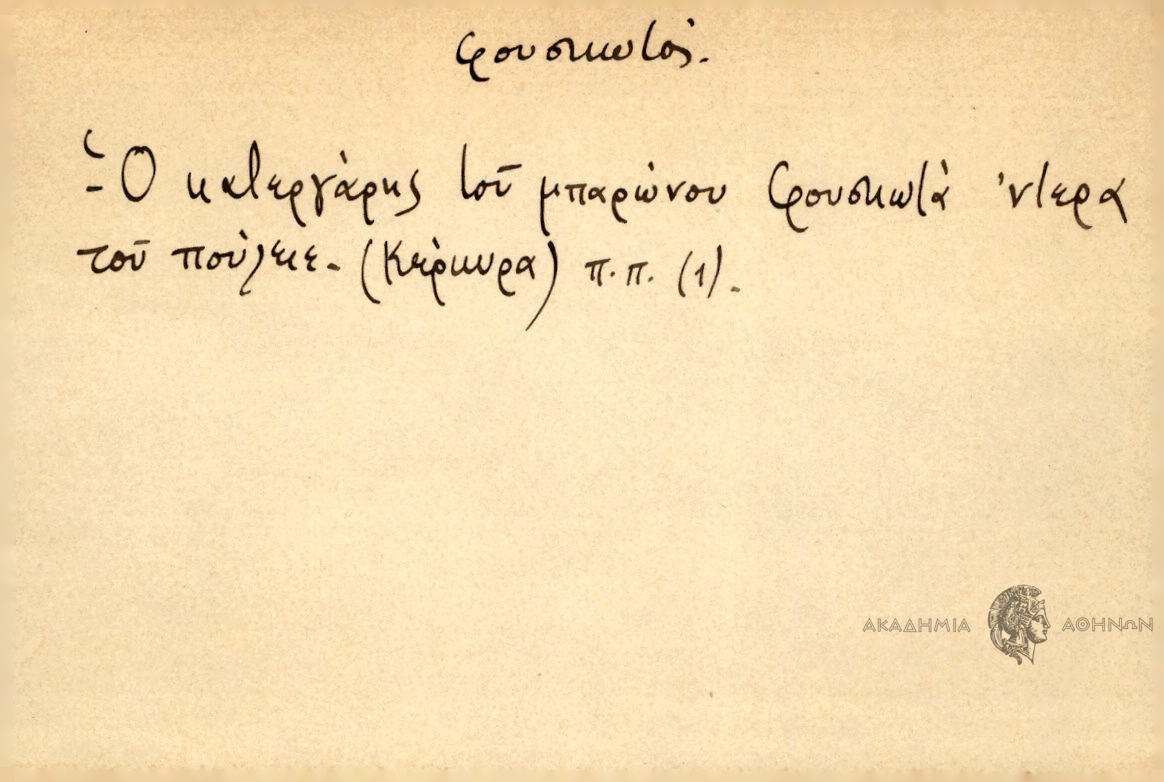 φουσκωτός.
- Ὁ κατεργάρης τοῦ μπαρώνου φουσκωτὰ 'ντερα
τοῦ πούλειε. (Κέρκυρα) π.π. (1).
ΑΚΑΔΗΜΙΑ ΑΘΗΝΩΝ